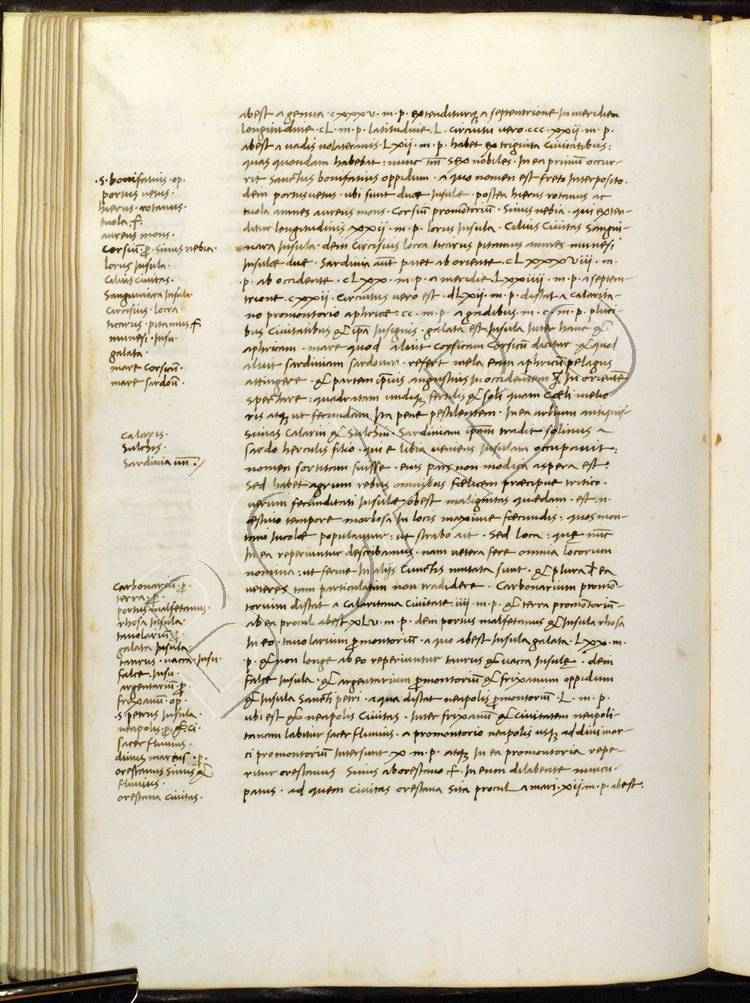 abest a genua · cxxxv · m · p · extenditurq; a septentrione in meridiem
longitudine · cL · m · p · latitudine · L · circuitu vero · ccc · xxii · m · p ·
abest a vadis volaterranis · LXII · m · p · habet ex triginta Civitatibus :
quas quondam habebat : nunc sex nobiles · In ea primum occur-
rit Sanctus bonifatius oppidum · a quo nomen est freto interposito ·
dein portus vetus · ubi sunt duae insulae · postea hierus rotanus ac
tuola amnes aureus mons · Corsium promontorium · Sinus nebia · qui exten-
ditur longitudinis xxii · m · p · lorus insula · Cilius Civitas Sangui-
nara insula · dein Circisius locra ticarus pitanus amnes munesi
insulae duae · Sardinia aut patet ab oriente cLxxxviii · m ·
· p · ab occidente · cLxx · m · p · a meridie · Lxxiiii · m · p · a septem-
trione · cxxii · Circuitus vero est · dLxii · m · p · distat a calarita-
no promontorio aphricae · cc · m · p · a gradibus · m · c · m · p · pluri-
bus Civitatibus & ipsa insignis · galata est insula inter hanc &
aphricam · mare quod abluit corsicam Corsicum dicitur · & quod
abluit sardiniam sardoum · refert mela eam aphricum pelagus
attingere · & partem ipsius angustius in occidentem q̃ in oriente
spectare : quadratam undiq; fertilis & soli quam Coeli melio-
ris atq; ut fecundam ita pene pestilentem · In ea urbium antiquis-
simas Calarin & Sulchin · Sardiniam ipsam tradit solinus a
sardo herculis filio · qui e libia veniens insulam occupavit :
nomen sortitam fuisse · eius pars non modica aspera est ·
Sed habet agrum rebus omnibus foelicem praecipue tritico ·
verum fecunditati insulae obest malignitas quaedam · est n ·
aestivo tempore morbosa in locis maxime foecundis : quos mon-
tani incolae populantur : ut strabo ait · Sed loca : quae nunc
in ea reperiuntur describamus · nam vetera fere omnia locorum
nomina : ut ferme in aliis Cunctis mutata sunt · & plura de ea
veteres tam particulatim non tradidere · Carbonarium promon-
torium distat a calaritana Civitate : iiii · m · p · & terra promontorium
ab ea procul abest xLv · m · p · dein portus malfetanus & insula rhosa
in eo · tavolarium promontorium · a quo abest insula galata · Lxx · m ·
p · & non longe ab eo reperiuntur taurus & vacca insulae · dein
falce insula · & argentarium promontorium & frixanum oppidum
& insula Sancti petri · a qua distat neapolis promontorium · L · m · p ·
ubi est & neapolis Civitas · Inter frixanum & Civitatem neapoli-
tanam labitur sacer fluvius · a promontorio neapolis usq; ad divi mar-
ci promontorium intersunt x · m · p · atq; in ea promontoria repe-
ritur orestanus Sinus ab orestano f · in eum dilabente nuncu-
patus · ad quem Civitas orestana sita procul a mari · xii · m · p · abest ·
· S · bonifatius · op ·
portus vetus ·
hierus · rotanus ·
tuola · f ·
aureus mons ·
Corsium · p · Sinus nebia ·
lorus insula ·
Cilius Civitas ·
Sanguinara insula ·
Circisius · locra ·
ticarus · pitanus f ·
munesi · insu ·
galata ·
mare corsicum ·
mare sardoum ·
Calaris ·
Sulchis ·
Sardinia
Carbonarium · p ·
terra · p ·
portus malfetanus ·
rhosa insula ·
tavolarium · p ·
galata insula
taurus · vacca · insu ·
falce · insu ·
argentarium · p ·
frixanum · op ·
· S · petrus insula ·
neapolis · p · & Ci ·
sacer fluvius ·
divus marcus · p ·
orestanus sinus &
fluvius ·
orestana Civitas ·